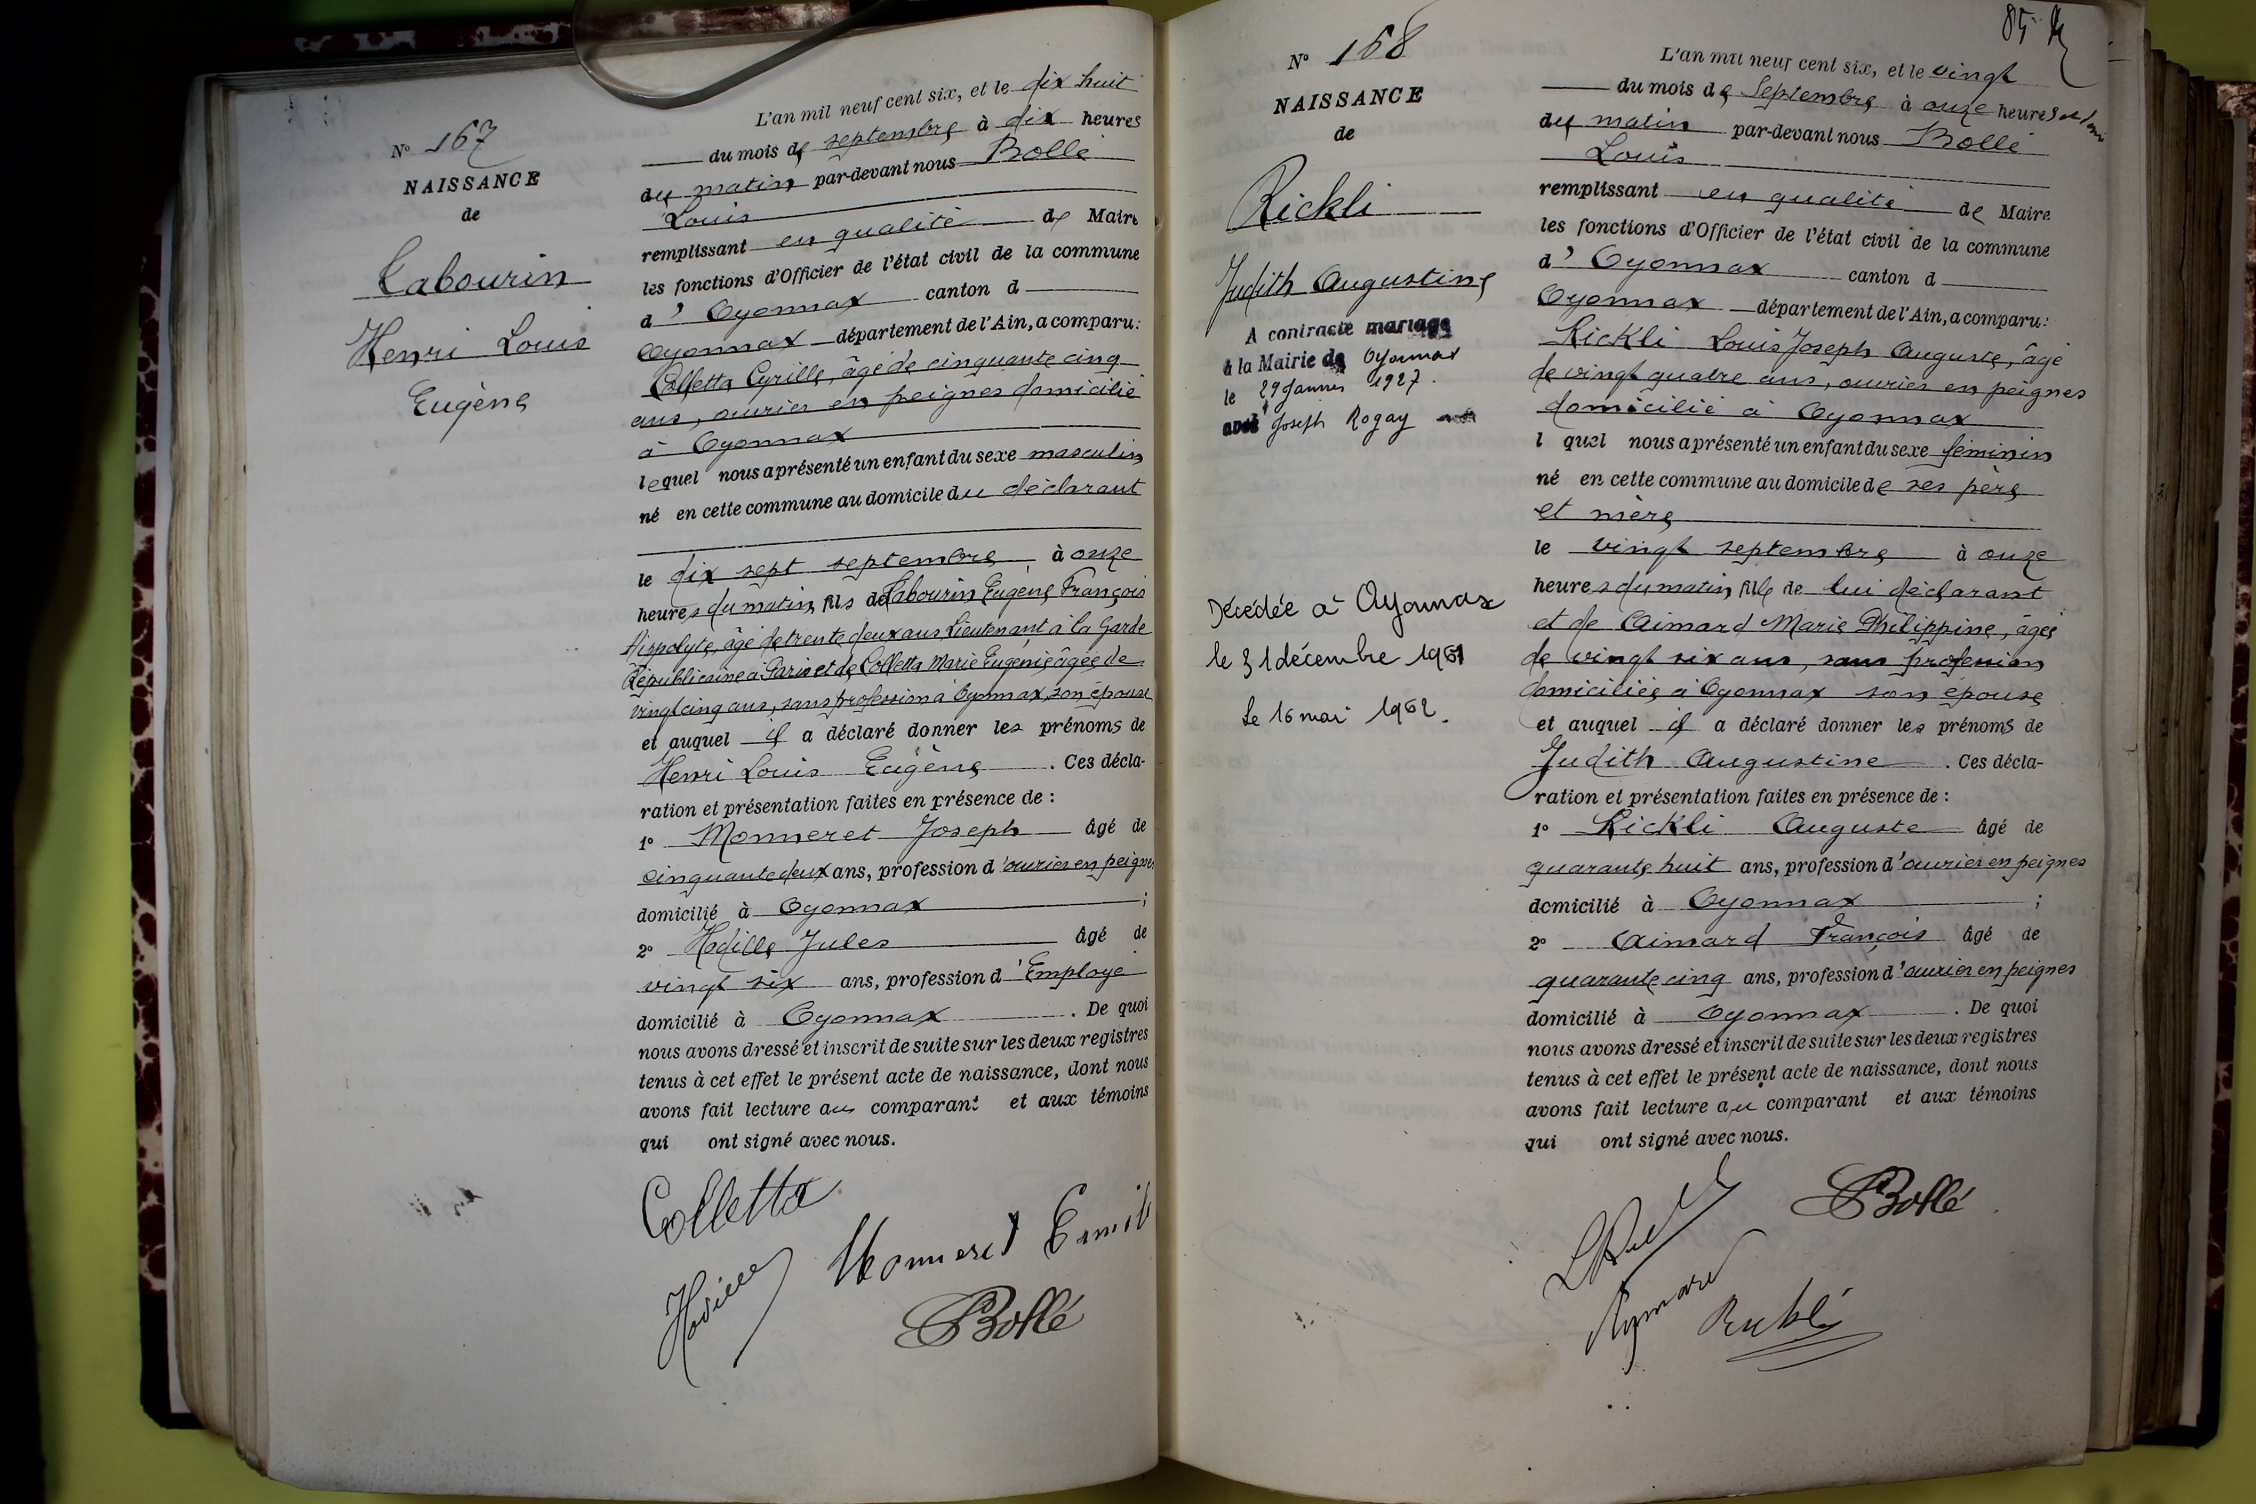 N° 167
NAISSANCE
de
Tabourin
Henri Louis
Eugène
L'an mil neuf cent six, et le dix huit
du mois de septembre à dix heures
du matin par-devant nous Bollé
Louis
remplissant en qualité de Maire
les fonctions d'Officier de l'état civil de la commune
d' Oyonnax canton d
Oyonnax département de l'Ain, a comparu:
Colletta Cyrille, âgé de cinquante cinq
ans, ouvrier en peignes domicilié
à Oyonnax
lequel nous a présenté un enfant du sexe masculin
né en cette commune au domicile du déclarant
le dix sept septembre à onze
heures du matin, fils de Tabourin Eugène François
Hippolyte, âgé de trente deux ans Lieutenant à la Garde
Républicaine à Paris et de Colletta Marie Eugénie âgée de
vingt cinq ans, sans profession à Oyonnax, son épouse
et auquel il a déclaré donner les prénoms de
Henri Louis Eugène . Ces décla-
ration et présentation faites en présence de :
1° Monneret Joseph âgé de
cinquante deux ans, profession d'ouvrier en peignes
domicilié à Oyonnax ;
2° Hodille Jules âgé de
vingt six ans, profession d'Employé
domicilié à Oyonnax . De quoi
nous avons dressé et inscrit de suite sur les deux registres
tenus à cet effet le présent acte de naissance, dont nous
avons fait lecture au comparant et aux témoins
qui ont signé avec nous.
Colletta
Monneret Emile
Bollé
85
N° 168
NAISSANCE
de
Rickli
Judith Augustine
A contracté mariage
à la Mairie de Oyonnax
le 29 janvier 1927.
avec Joseph Rogay
Décédée à Oyonnax
le 31 décembre 1961
Le 16 mai 1962.
L'an mil neuf cent six, et le vingt
du mois de Septembre à onze heures et demi
du matin par-devant nous Bollé
Louis
remplissant en qualité de Maire
les fonctions d'Officier de l'état civil de la commune
d' Oyonnax canton d
Oyonnax département de l'Ain, a comparu:
Rickli Louis Joseph Auguste, âgé
de vingt quatre ans, ouvrier en peignes
domicilié à Oyonnax
l quel nous a présenté un enfant du sexe féminin
né en cette commune au domicile de ses père
et mère
le vingt septembre à onze
heures du matin, fille de lui déclarant
et de Aimard Marie Philippine, âgée
de vingt six ans, sans profession
domiciliée à Oyonnax son épouse
et auquel il a déclaré donner les prénoms de
Judith Augustine . Ces décla-
ration et présentation faites en présence de :
1° Rickli Auguste âgé de
quarante huit ans, profession d'ouvrier en peignes
domicilié à Oyonnax ;
2° Aimard François âgé de
quarante cinq ans, profession d'ouvrier en peignes
domicilié à Oyonnax . De quoi
nous avons dressé et inscrit de suite sur les deux registres
tenus à cet effet le présent acte de naissance, dont nous
avons fait lecture au comparant et aux témoins
qui ont signé avec nous.
Bollé